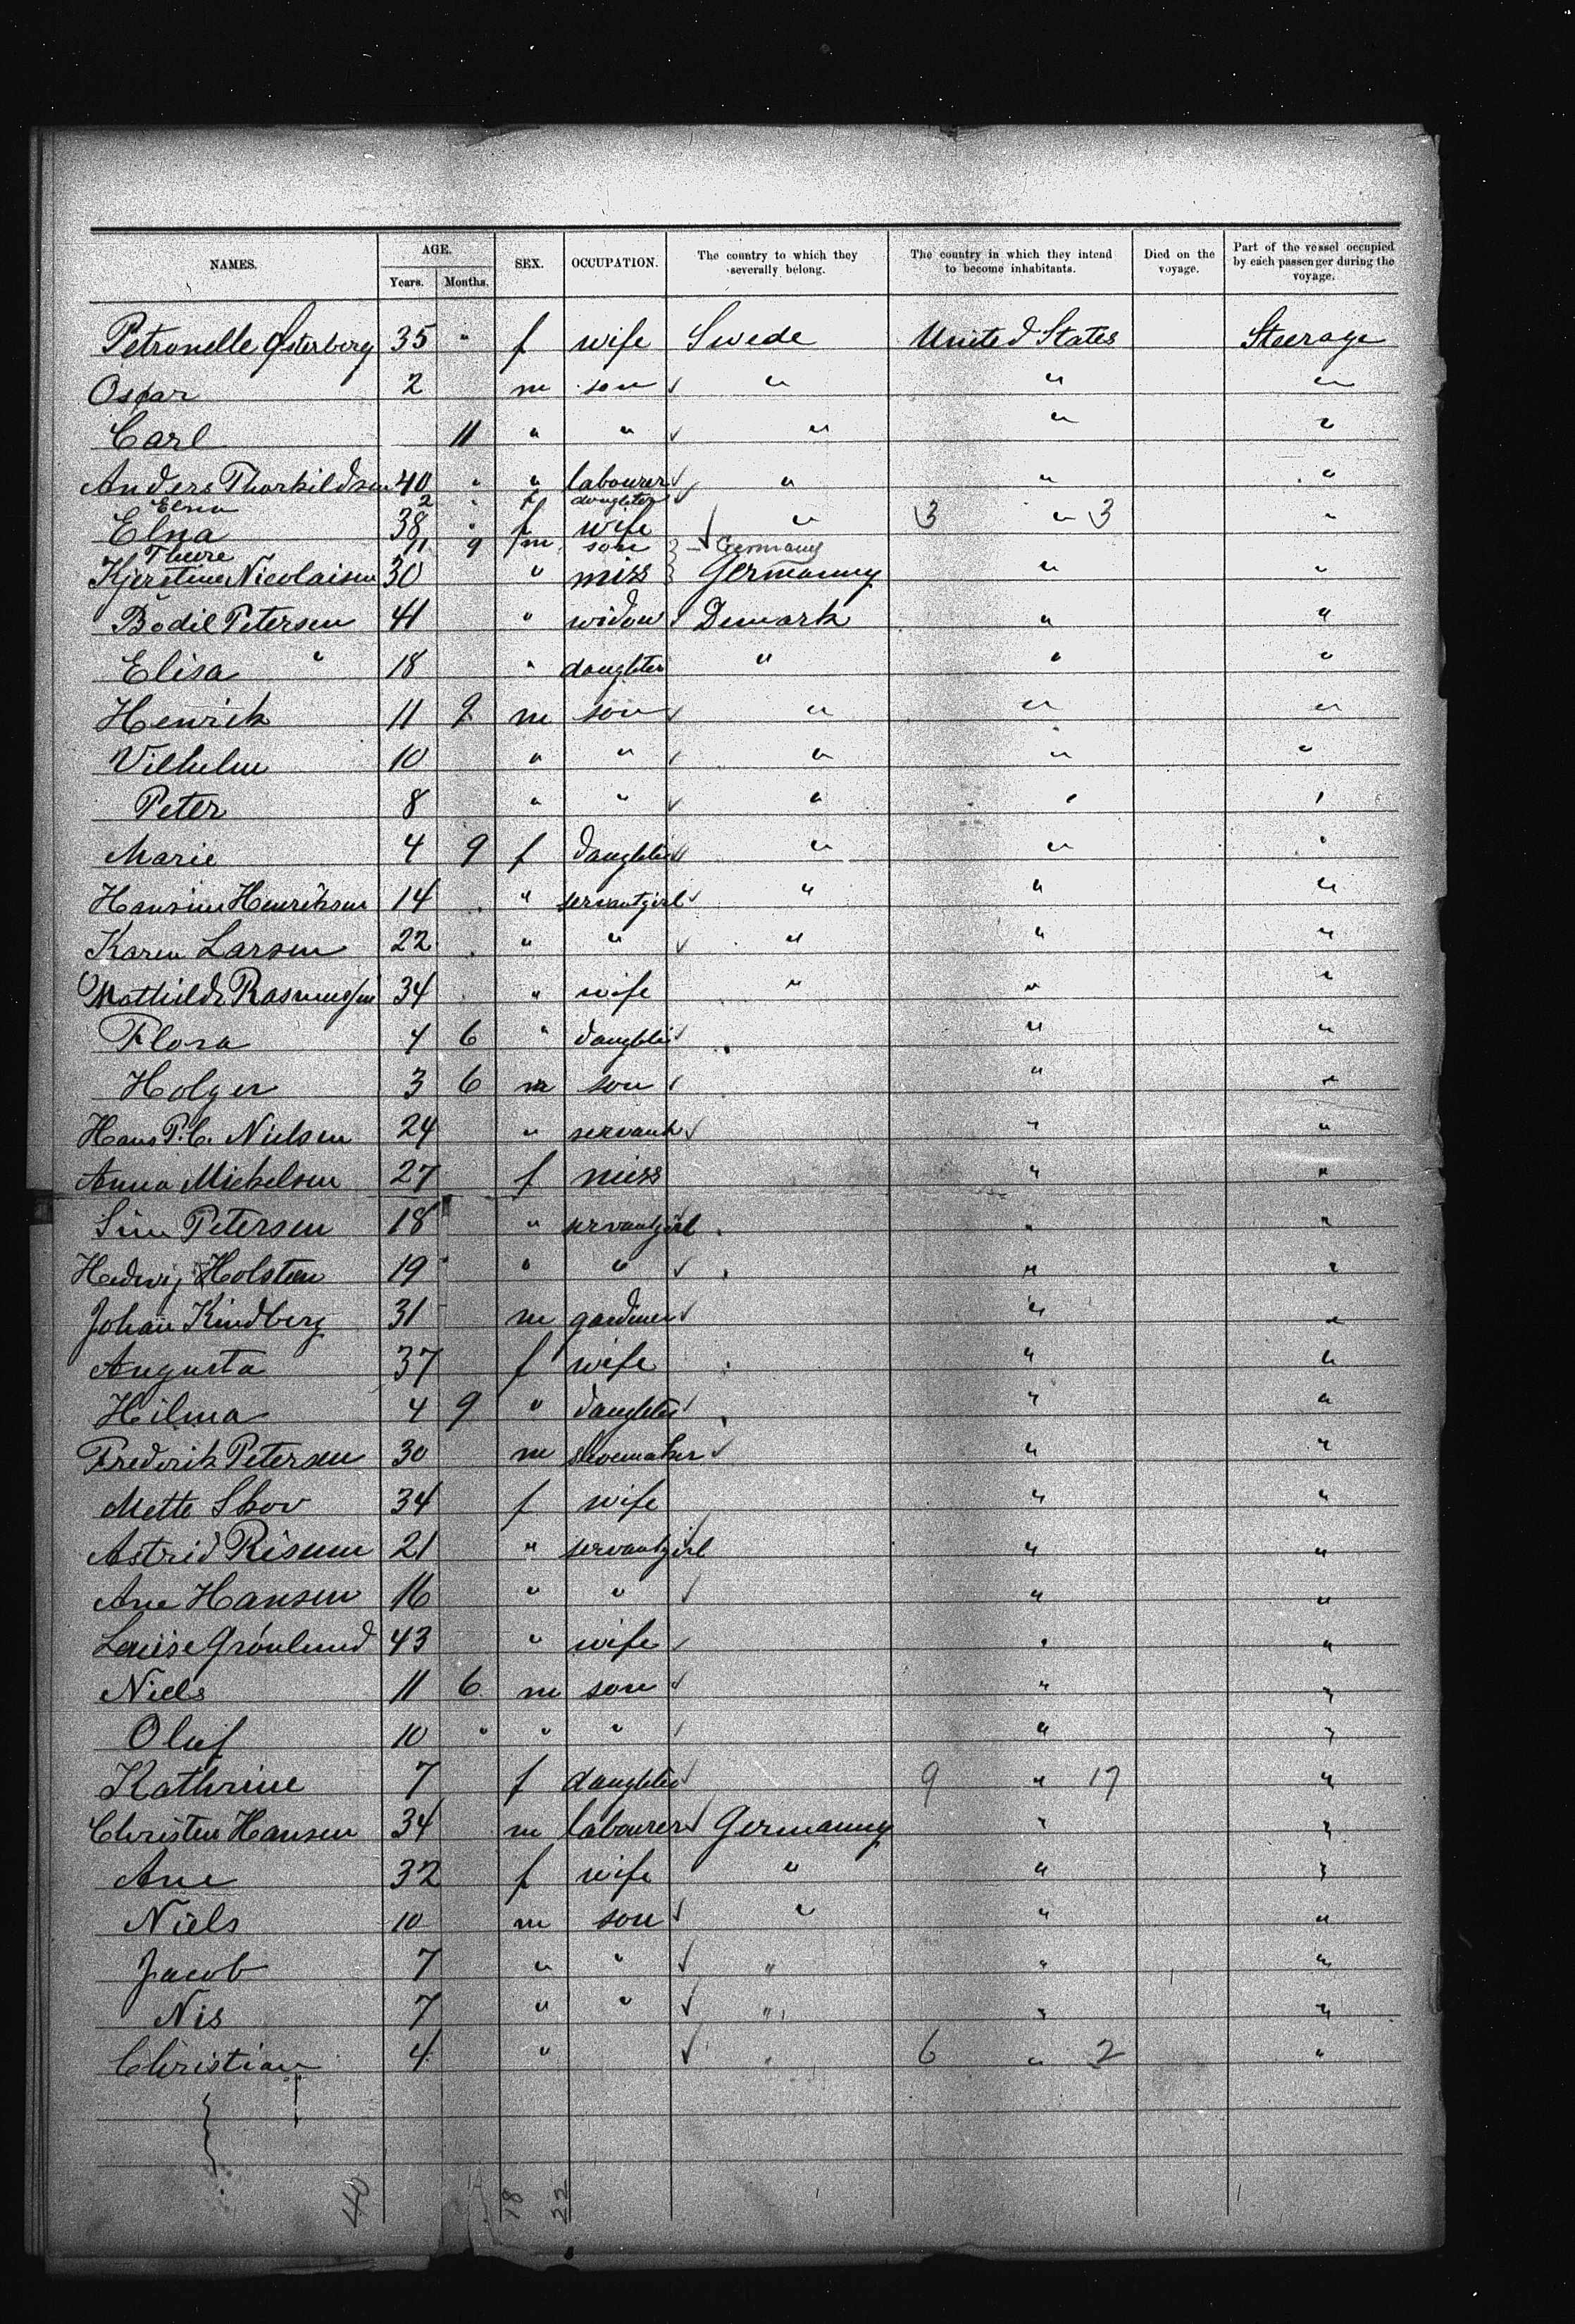 NAMES. AGE. Years. Months. SEX. OCCUPATION. The country to which they severally belong. The country in which they intend to become inhabitants. Died on the voyage. Part of the vessel occupied by each passenger during the voyage.
Petronelle Østerberg 35 " f wife Swede United States Steerage
Oskar 2 m son " " "
Carl 11 " " " " "
Anders Thorkildsen 40 " " labourer " " "
Elna 2 " f daughter
Elna 38 " f wife " 3 " 3 "
Thure 11 9 m son Germany
Kjerstine Nicolaisen 30 " miss Germanny " "
Bodil Petersen 41 " widow Denmark " "
Elisa " 18 " daughter " " "
Henrick 11 9 m son " " "
Vilhelm 10 " " " " "
Peter 8 " " " " "
Marie 4 9 f daughter " " "
Hansine Henriksen 14 " servantgirl " " "
Karen Larsen 22 " " " " "
Mathilde Rasmussen 34 " wife " " "
Flora 4 6 " daughter " "
Holger 3 6 m son " "
Hans P.C. Nielsen 24 " servant " "
Anna Mickelsen 27 f miss " "
Sine Petersen 18 " servantgirl " "
Hedwig Holsten 19 " " " "
Johan Kindberg 31 m gardiner " "
Augusta 37 f wife " "
Hilma 4 9 " daughter " "
Frederik Petersen 30 m shoemaker " "
Mette Skov 34 f wife " "
Astrid Risum 21 " servantgirl " "
Ane Hansen 16 " " " "
Louise Grönlund 43 " wife " "
Niels 11 6 m son " "
Oluf 10 " " " " "
Kathrine 7 f daughter 9 " 17 "
Christen Hansen 34 m labourer Germanny " "
Ane 32 f wife " " "
Niels 10 m son " " "
Jacob 7 " " " " "
Nis 7 " " " " "
Christian 4 " " 6 " 2 "
40 18 22